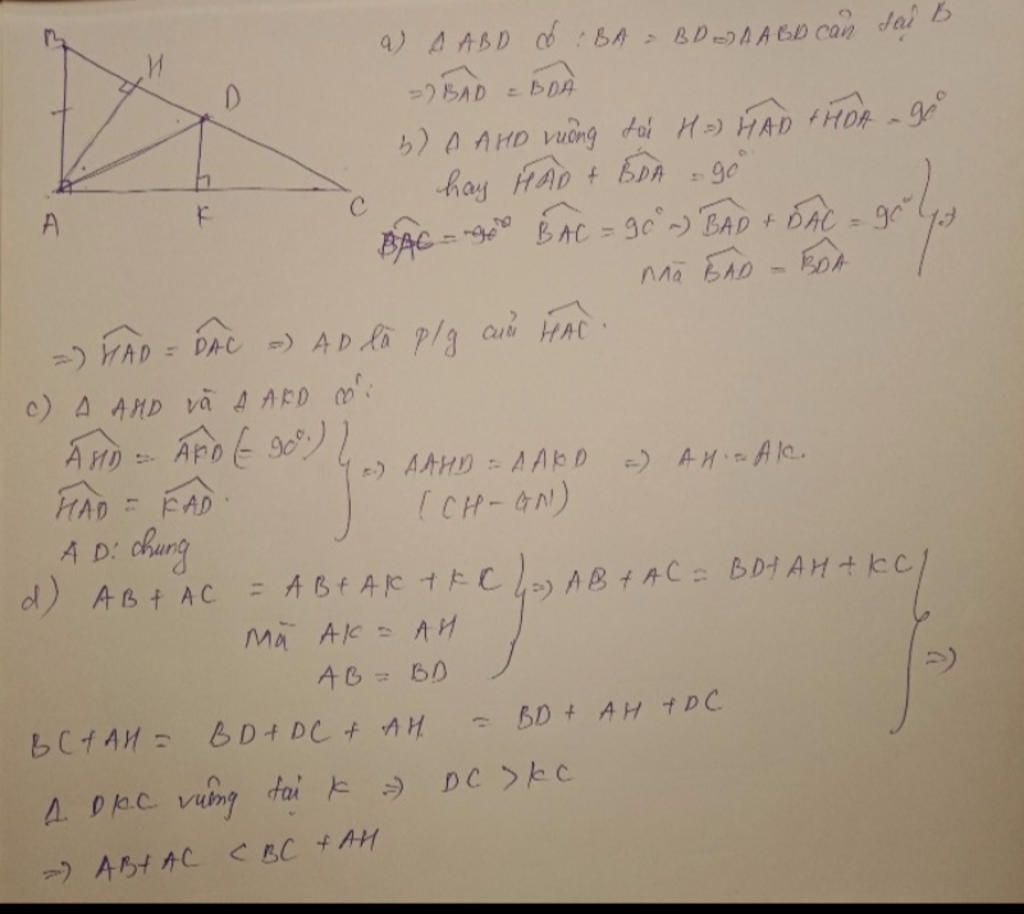 B
H
D
A
K
C
a) Δ ABD có : BA = BD => Δ ABD cân tại B
=> \widehat{BAD} = \widehat{BDA}
b) Δ AHD vuông tại H => \widehat{HAD} + \widehat{HDA} = 90°
hay \widehat{HAD} + \widehat{BDA} = 90°
\widehat{BAC} = 90° \widehat{BAC} = 90° => \widehat{BAD} + \widehat{DAC} = 90° } =>
mà \widehat{BAD} = \widehat{BDA}
=> \widehat{HAD} = \widehat{DAC} => AD là p/g của \widehat{HAC}.
c) Δ AHD và Δ AKD có:
\widehat{AHD} = \widehat{AKD} (= 90°)
\widehat{HAD} = \widehat{KAD}. } => ΔAHD = ΔAKD => AH = AK.
(CH - GN)
AD: chung
d) AB + AC = AB + AK + KC } => AB + AC = BD + AH + KC } =>
mà AK = AH
AB = BD
BC + AH = BD + DC + AH = BD + AH + DC
Δ DKC vuông tại K => DC > KC
=> AB + AC < BC + AH